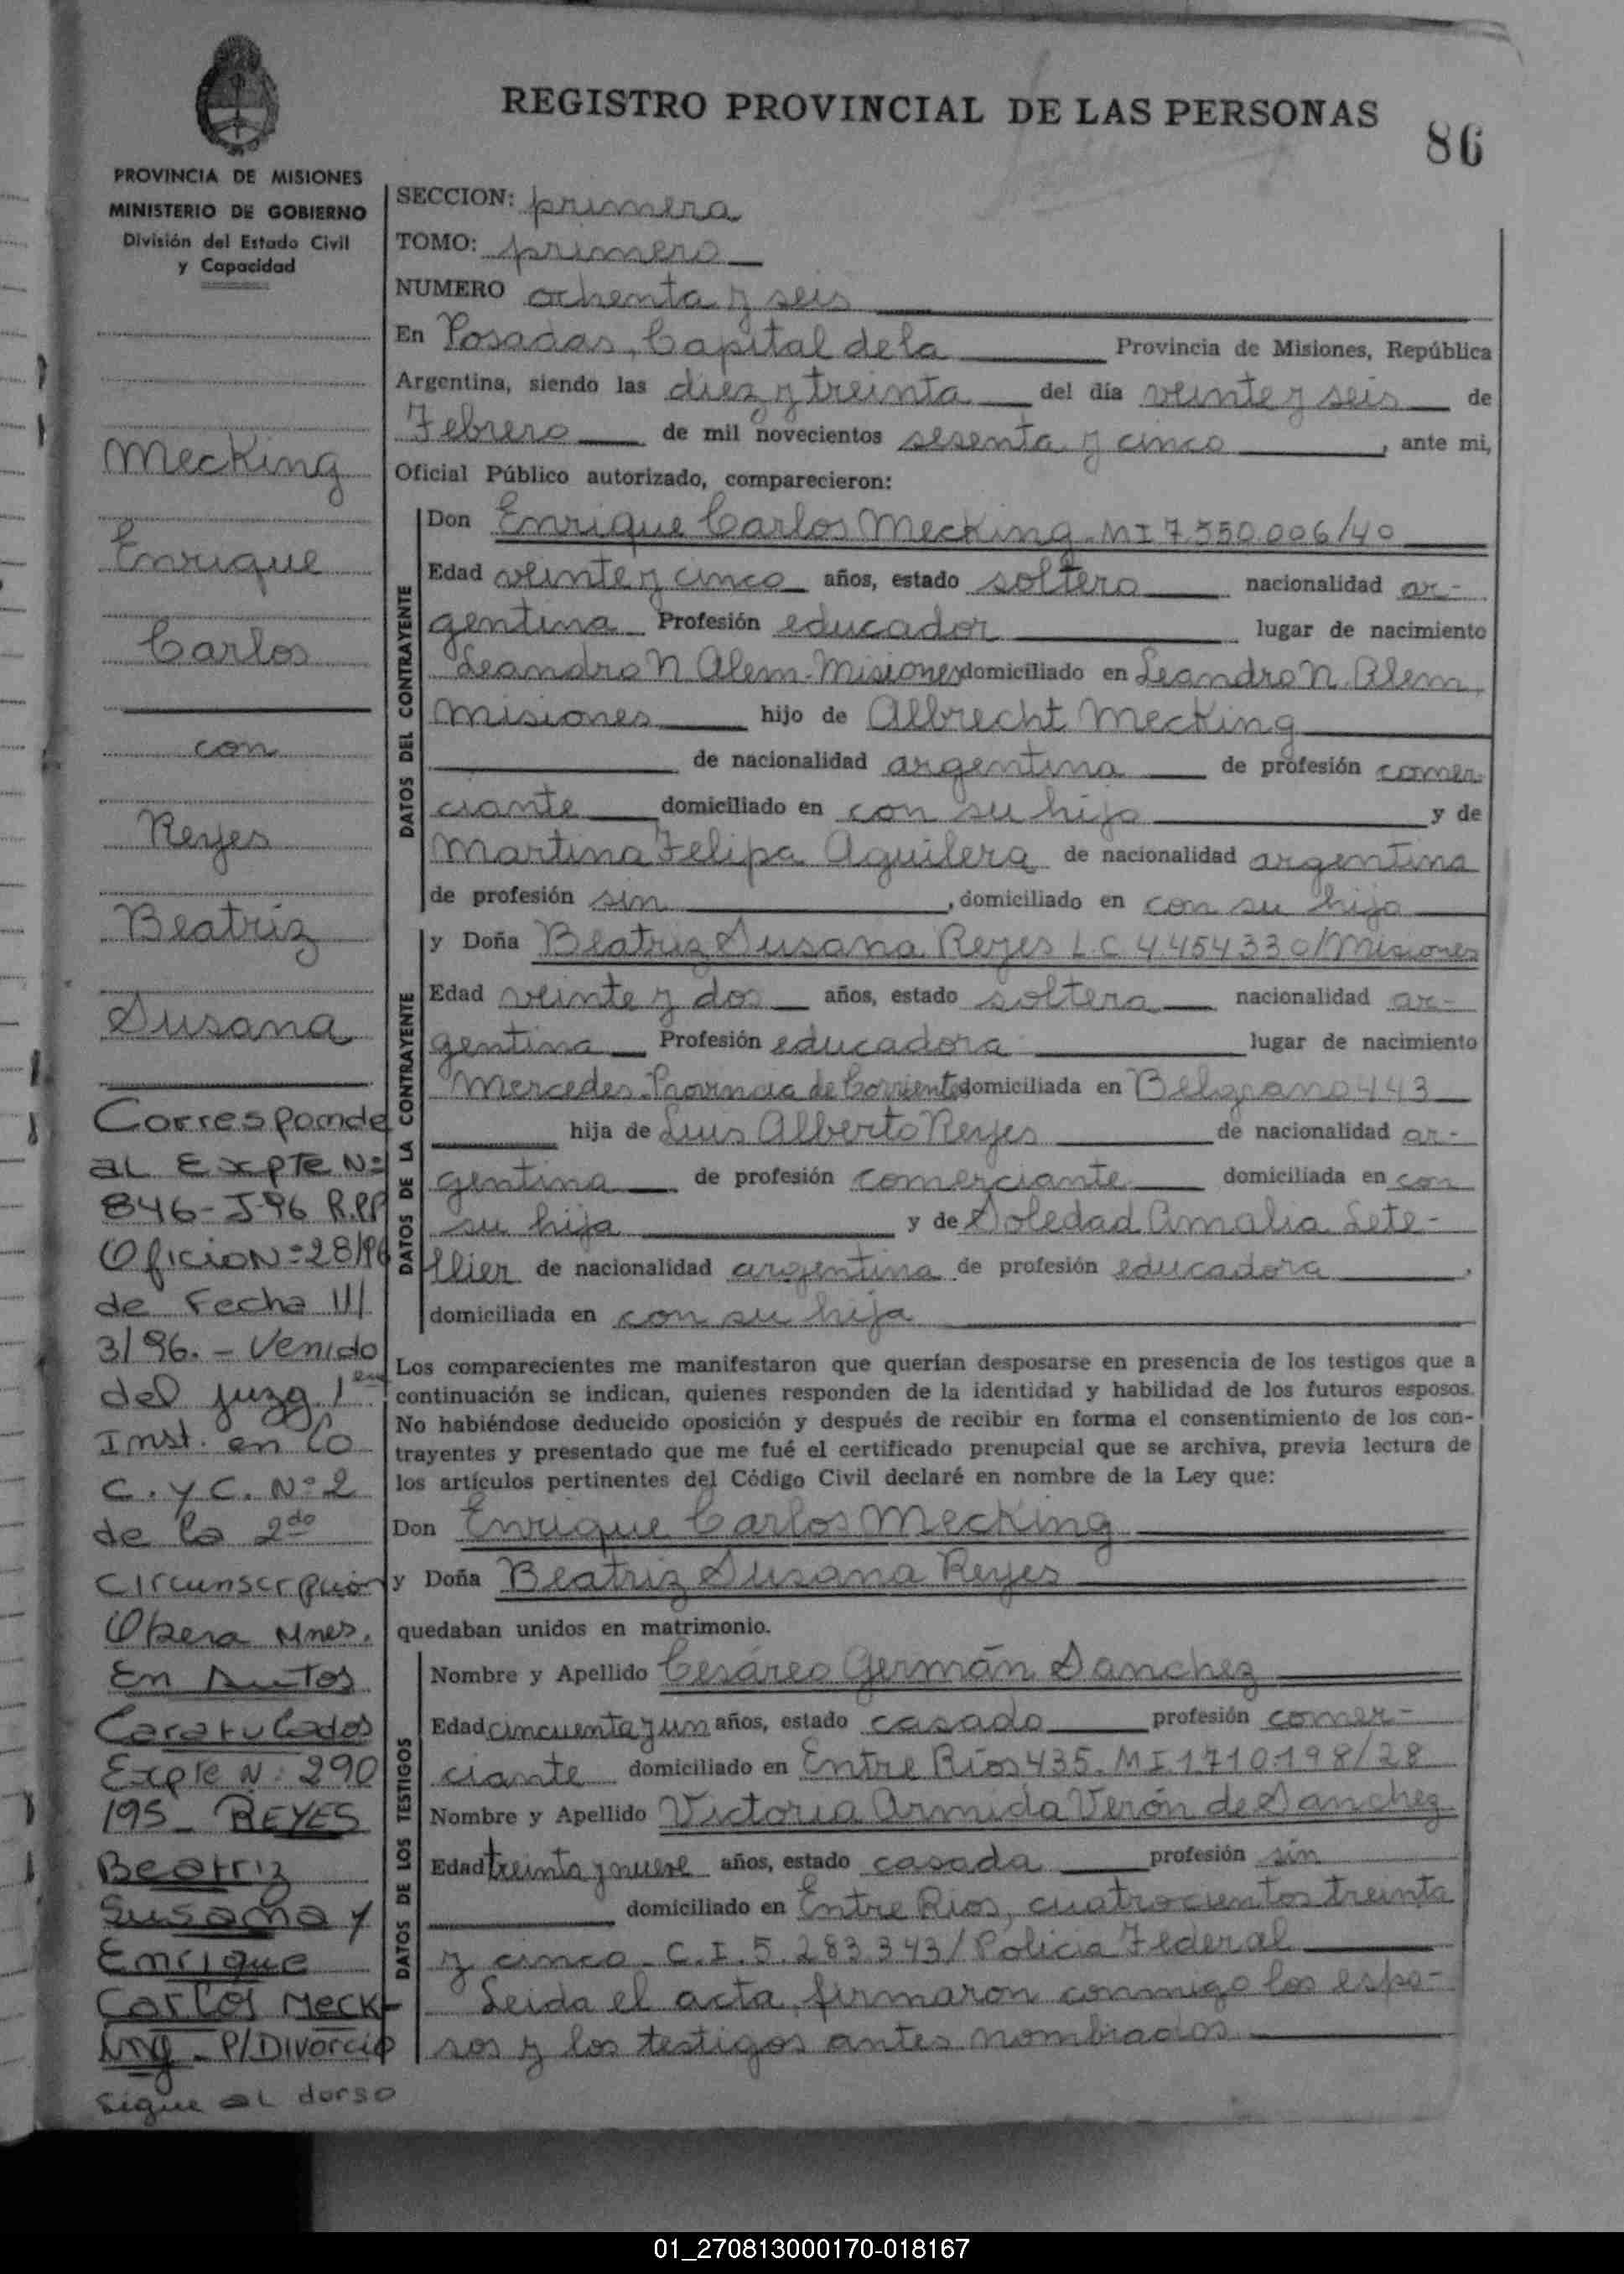 REGISTRO PROVINCIAL DE LAS PERSONAS
86
PROVINCIA DE MISIONES
MINISTERIO DE GOBIERNO
División del Estado Civil
y Capacidad
Mecking
Enrique
Carlos
con
Reyes
Beatriz
Susana
Corresponde
al Expte Nº
846-J-96 R.PP
Oficio Nº 28/96
de Fecha 11/
3/96.- Venido
del Juzg. 1era
Inst. en lo
C. y C. Nº 2
de la 2do
Circunscrpción
Obera Mnes.
En Autos
Caratulados
Expte Nº 290
195_ REYES
Beatriz
Susana y
Enrique
Carlos Meck-
ing - P/Divorcio
sigue al dorso
SECCION: primera
TOMO: primero
NUMERO ochenta y seis
En Posadas, Capital de la Provincia de Misiones, República
Argentina, siendo las diez y treinta del día veinte y seis de
Febrero de mil novecientos sesenta y cinco, ante mi,
Oficial Público autorizado, comparecieron:
DATOS DEL CONTRAYENTE
Don Enrique Carlos Mecking - MI 7.550.006/40
Edad veinte y cinco años, estado soltero nacionalidad ar-
gentina Profesión educador lugar de nacimiento
Leandro N Alem-Misiones domiciliado en Leandro N. Alem,
Misiones hijo de Albrecht Mecking
de nacionalidad argentina de profesión comer-
ciante domiciliado en con su hijo y de
Martina Felipa Aguilera de nacionalidad argentina
de profesión sin, domiciliado en con su hijo
DATOS DE LA CONTRAYENTE
y Doña Beatriz Susana Reyes L.C 4.454330/Misiones
Edad veinte y dos años, estado soltera nacionalidad ar-
gentina Profesión educadora lugar de nacimiento
Mercedes-Provincia de Corrientes domiciliada en Belgrano 443
hija de Luis Alberto Reyes de nacionalidad ar-
gentina de profesión comerciante domiciliada en con
su hija y de Soledad Amalia Lete-
llier de nacionalidad argentina de profesión educadora,
domiciliada en con su hija
Los comparecientes me manifestaron que querían desposarse en presencia de los testigos que a
continuación se indican, quienes responden de la identidad y habilidad de los futuros esposos.
No habiéndose deducido oposición y después de recibir en forma el consentimiento de los con-
trayentes y presentado que me fué el certificado prenupcial que se archiva, previa lectura de
los artículos pertinentes del Código Civil declaré en nombre de la Ley que:
Don Enrique Carlos Mecking
y Doña Beatriz Susana Reyes
quedaban unidos en matrimonio.
DATOS DE LOS TESTIGOS
Nombre y Apellido Cesáreo Germán Sanchez
Edad cincuenta y un años, estado casado profesión comer-
ciante domiciliado en Entre Ríos 435. MI 1710.198/28
Nombre y Apellido Victoria Armida Verón de Sanchez
Edad treinta y nueve años, estado casada profesión sin
domiciliado en Entre Rios, cuatrocientos treinta
y cinco - C.I. 5.283.343/Policia Federal
Leida el acta, firmaron conmigo los espo-
sos y los testigos antes nombrados
01_270813000170-018167